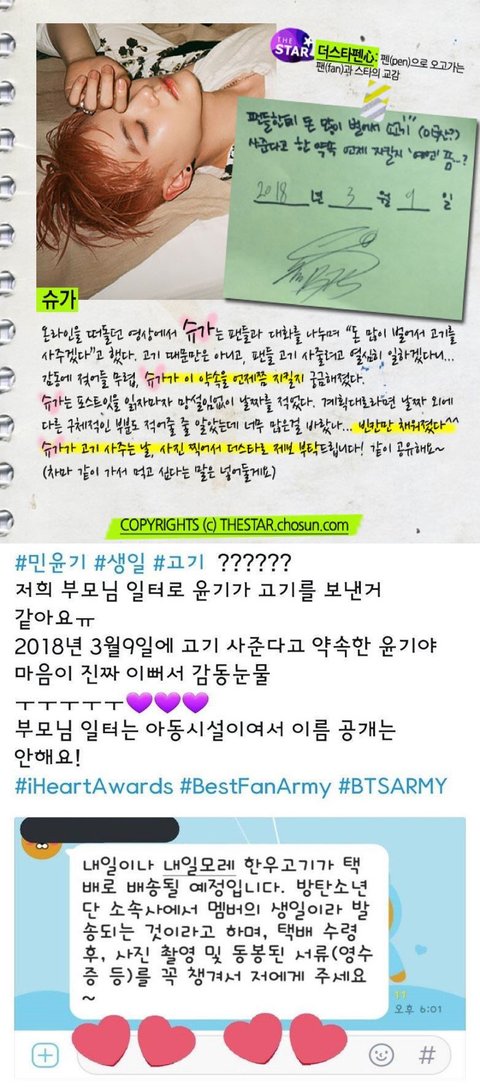 THE STAR
더스타펜心: 펜(pen)으로 오고가는
팬(fan)과 스타의 교감
팬들한테 돈 많이 벌어서 "고기"
사준다고 한 약속 언제 지킬지
2018 년 3 월 9 일
슈가
온라인을 떠돌던 영상에서 슈가는 팬들과 대화를 나누며 "돈 많이 벌어서 고기를
사주겠다"고 했다. 고기 때문만은 아니고, 팬들 고기 사줄려고 열심히 일하겠다니...
감동에 젖어들 무렵, 슈가가 이 약속을 언제쯤 지킬지 궁금해졌다.
슈가는 포스트잇을 읽자마자 망설임없이 날짜를 적었다. 계획대로라면 날짜 외에
다른 구체적인 부분도 적어줄 줄 알았는데 너무 많은걸 바랐나... 빈칸만 채워졌다^^
슈가가 고기 사주는 날, 사진 찍어서 더스타로 제보 부탁드립니다! 같이 공유해요~
(차마 같이 가서 먹고 싶다는 말은 넣어둘게요)
COPYRIGHTS (c) THESTAR.chosun.com
#민윤기 #생일 #고기 ??????
저희 부모님 일터로 윤기가 고기를 보낸거
같아요ㅠ
2018년 3월9일에 고기 사준다고 약속한 윤기야
마음이 진짜 이뻐서 감동눈물
ㅜㅜㅜㅜㅜ💜💜💜
부모님 일터는 아동시설이여서 이름 공개는
안해요!
#iHeartAwards #BestFanArmy #BTSARMY
내일이나 내일모레 한우고기가 택
배로 배송될 예정입니다. 방탄소년
단 소속사에서 멤버의 생일이라 발
송되는 것이라고 하며, 택배 수령
후, 사진 촬영 및 동봉된 서류(영수
증 등)를 꼭 챙겨서 저에게 주세요
~
11
오후 6:01
#